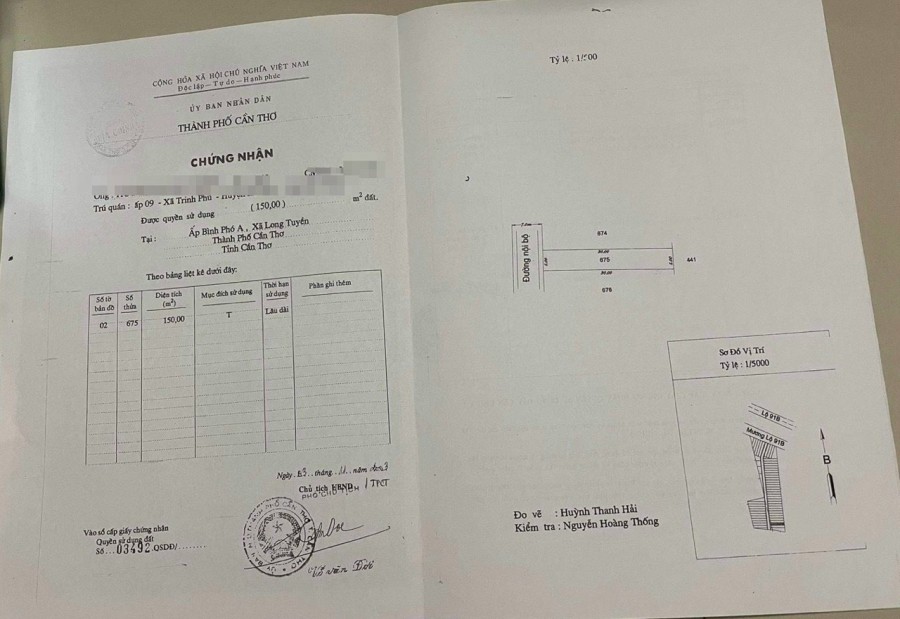 CỘNG HÒA XÃ HỘI CHỦ NGHĨA VIỆT NAM
Độc lập - Tự do - Hạnh phúc
ỦY BAN NHÂN DÂN
THÀNH PHỐ CẦN THƠ
CHỨNG NHẬN
Trú quán : ấp 09 - Xã Trinh Phú - Huyện
Được quyền sử dụng ( 150,00 ) m² đất.
Tại : Ấp Bình Phó A , Xã Long Tuyền
Thành Phố Cần Thơ
Tỉnh Cần Thơ
Theo bảng liệt kê dưới đây:
Số tờ bản đồ Số thửa Diện tích (m²) Mục đích sử dụng Thời hạn sử dụng Phần ghi thêm
02 675 150,00 T Lâu dài
Ngày tháng 11 năm
Chủ tịch UBND / TPCT
PHÓ CHỦ TỊCH
Vào sổ cấp giấy chứng nhận
Quyền sử dụng đất
Số 03492 QSDĐ/
Tỷ lệ : 1/500
7.0m
Đường nội bộ
674
30.00
5.00
675
5.00
441
30.00
676
Sơ Đồ Vị Trí
Tỷ lệ : 1/5000
Lộ 91B
Mương Lộ 91B
B
Đo vẽ : Huỳnh Thanh Hải
Kiểm tra : Nguyễn Hoàng Thống